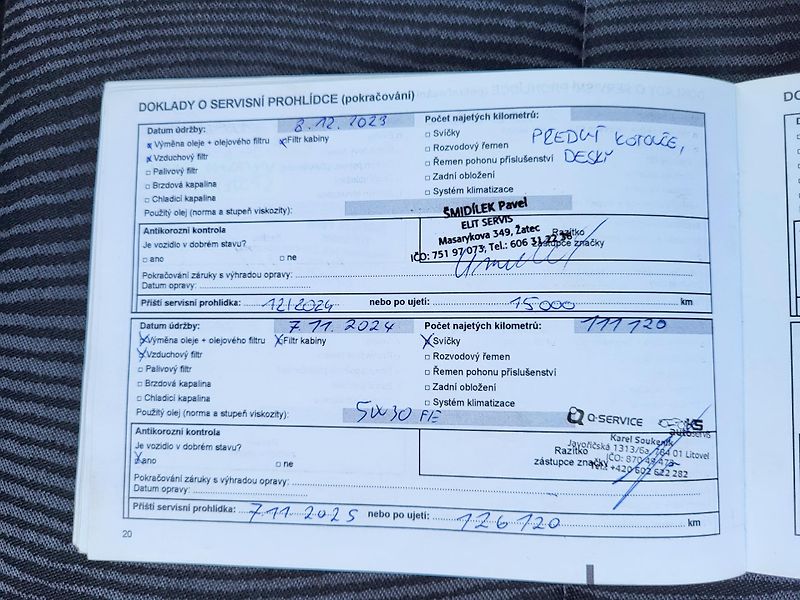 DOKLADY O SERVISNÍ PROHLÍDCE (pokračování)
Datum údržby: 8.12.2023 Počet najetých kilometrů:
x Výměna oleje + olejového filtru x Filtr kabiny □ Svíčky PŘEDNÍ KOTOUČE,
x Vzduchový filtr □ Rozvodový řemen DESKY
□ Palivový filtr □ Řemen pohonu příslušenství
□ Brzdová kapalina □ Zadní obložení
□ Chladicí kapalina □ Systém klimatizace
Použitý olej (norma a stupeň viskozity):
ŠMIDÍLEK Pavel
ELIT SERVIS
Masarykova 349, Žatec
IČO: 751 97 073, Tel.: 606 31 22 36
Antikorozní kontrola
Je vozidlo v dobrém stavu? Razítko
□ ano □ ne zástupce značky
Pokračování záruky s výhradou opravy:
Datum opravy:
Příští servisní prohlídka: 12/2024 nebo po ujetí: 15000 km
Datum údržby: 7.11.2024 Počet najetých kilometrů: 111120
x Výměna oleje + olejového filtru x Filtr kabiny x Svíčky
x Vzduchový filtr □ Rozvodový řemen
□ Palivový filtr □ Řemen pohonu příslušenství
□ Brzdová kapalina □ Zadní obložení
□ Chladicí kapalina □ Systém klimatizace
Použitý olej (norma a stupeň viskozity): 5W30 FE
Q-SERVICE KS
autoservis
Karel Soukeník
Javoříčská 1313/6a, 784 01 Litovel
IČO: 870 49 473
Tel.: +420 602 622 282
Antikorozní kontrola
Je vozidlo v dobrém stavu? Razítko
x ano □ ne zástupce značky
Pokračování záruky s výhradou opravy:
Datum opravy:
Příští servisní prohlídka: 7.11.2025 nebo po ujetí: 126120 km
20
DO